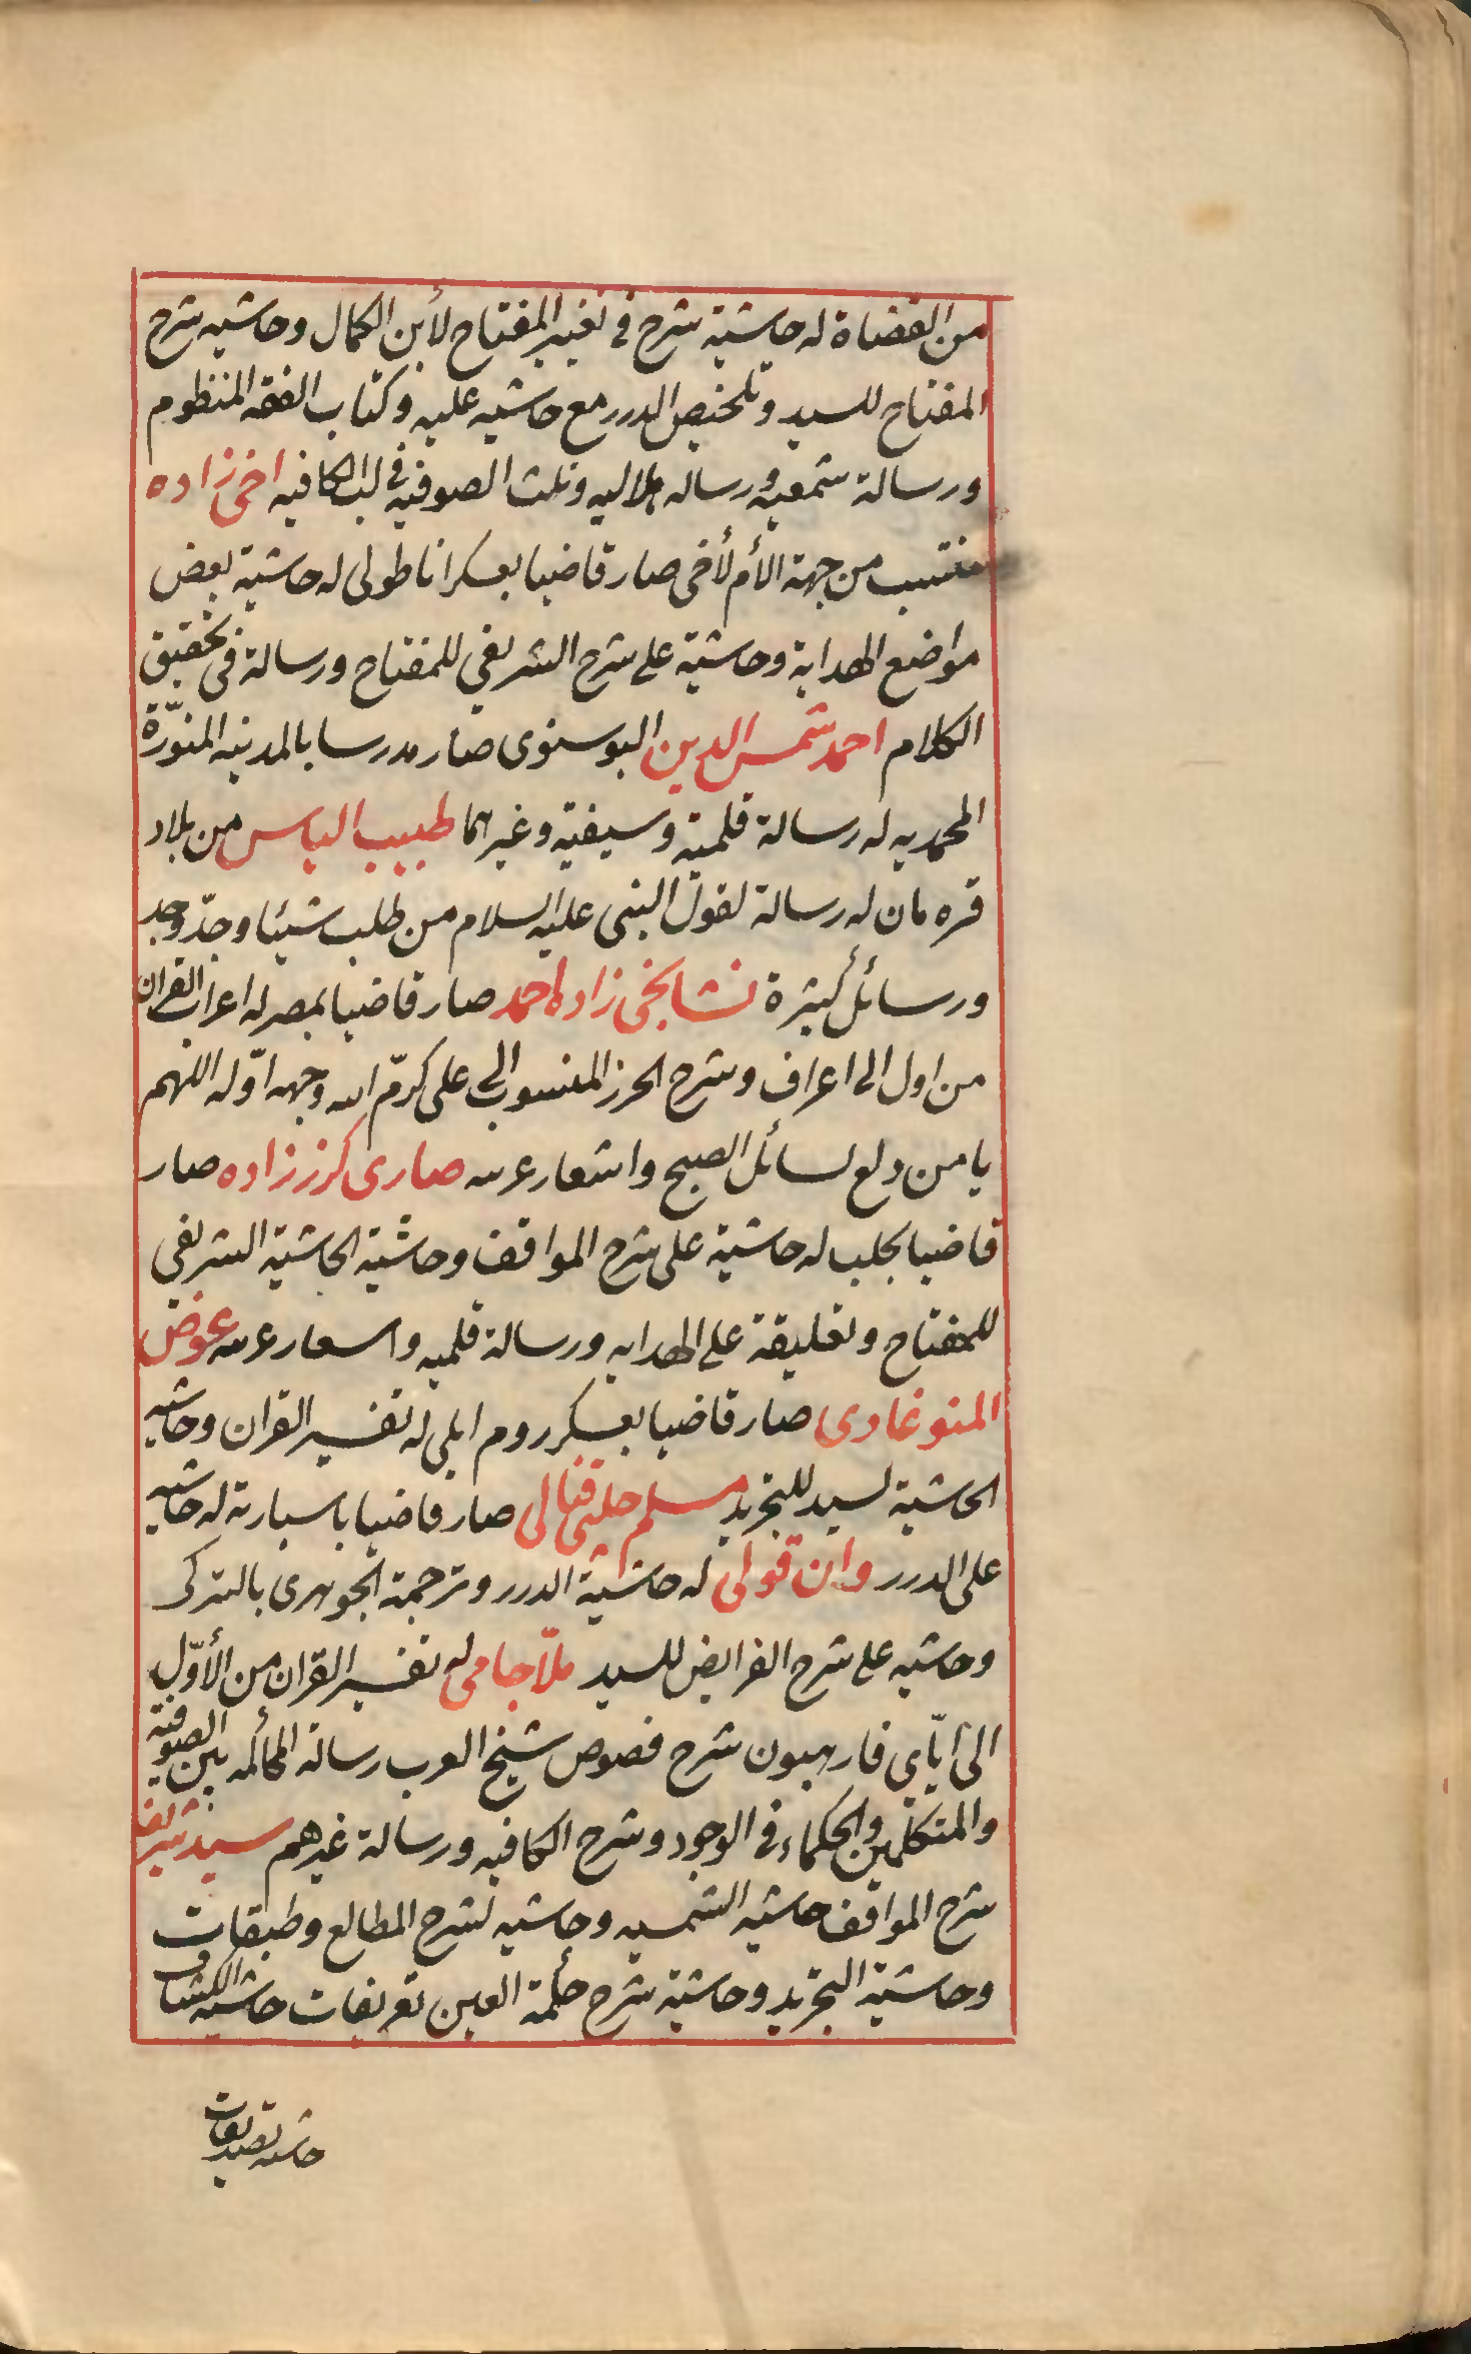 من القضاة له حاشية شرح في تغيير المفتاح لأبن الكمال وحاشيه شرح
المفتاح للسيد وتلخيص الدرر مع حاشيه عليه وكتاب الفقه المنظوم
ورسالة شمعيه ورساله هلاليه وثلث الصوفيه في لب الكافيه اخى زاده
منتسب من جهة الأم لأخى صار قاضيا بعسكر اناطولى له حاشية بعض
مواضع الهداية وحاشية على شرح الشريفي للمفتاح ورسالة في تحقيق
الكلام احمد شمس الدين البوسنوى صار مدرسا بالمدينه المنوّرة
المحمديه له رسالة قلمية وسيفية وغيرهما طبيب الياس من بلاد
قره مان له رسالة لقول النبى عليه السلام من طلب شيئا وجدّ وجد
ورسائل كثيرة نشانجى زاده احمد صار قاضيا بمصر له اعراب القران
من اول الى اعراف وشرح الحرز المنسوب الى على كرّم الله وجهه اوّله اللهم
يا من دلع لسائل الصبح واشعار عربيه صارى كرز زاده صار
قاضيا بحلب له حاشية على شرح المواقف وحاشية الحاشية الشريفي
للمفتاح وتعليقة على الهدايه ورسالة قلميه واسعار عربيه عوض
المنوغادى صار قاضيا بعسكر روم ايلى له تفسير القران وحاشيه
الحاشية لسيد للتجريد مسلم چلبى قنالى صار قاضيا باسبارته له حاشيه
على الدرر وان قولى له حاشية الدرر وترجمة الجوهرى بالتركى
وحاشيه على شرح الفرايض للسيد ملّا جامى له تفسير القران من الأوّل
الى ايّاي فارهبون شرح فصوص شيخ العرب رسالة المحاكمه بين الصوفية
والمتكلمين والحكماء في الوجود وشرح الكافيه ورسالة غيرهم سيد شريف
شرح المواقف حاشيه الشمسيه وحاشيه لشرح المطالع وطبيقات
وحاشية التجريد وحاشية شرح حكمة العين تعريفات حاشيه الكشاف
حاشيه تصديقات